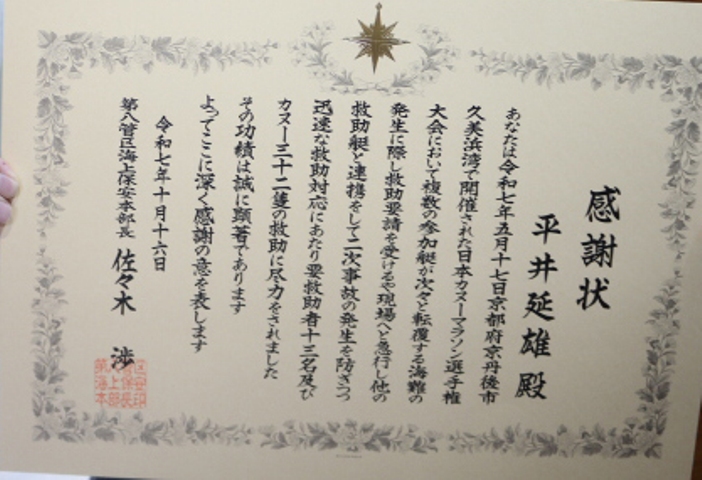 感謝状
平井延雄 殿
あなたは令和七年五月十七日京都府京丹後市
久美浜湾で開催された日本カヌーマラソン選手権
大会において複数の参加艇が次々と転覆する海難の
発生に際し救助要請を受けるや現場へと急行し他の
救助艇と連携をして二次事故の発生を防ぎつつ
迅速な救助対応にあたり要救助者十三名及び
カヌー三十二隻の救助に尽力をされました
その功績は誠に顕著であります
よってここに深く感謝の意を表します
令和七年十月十六日
第八管区海上保安本部長 佐々木 渉